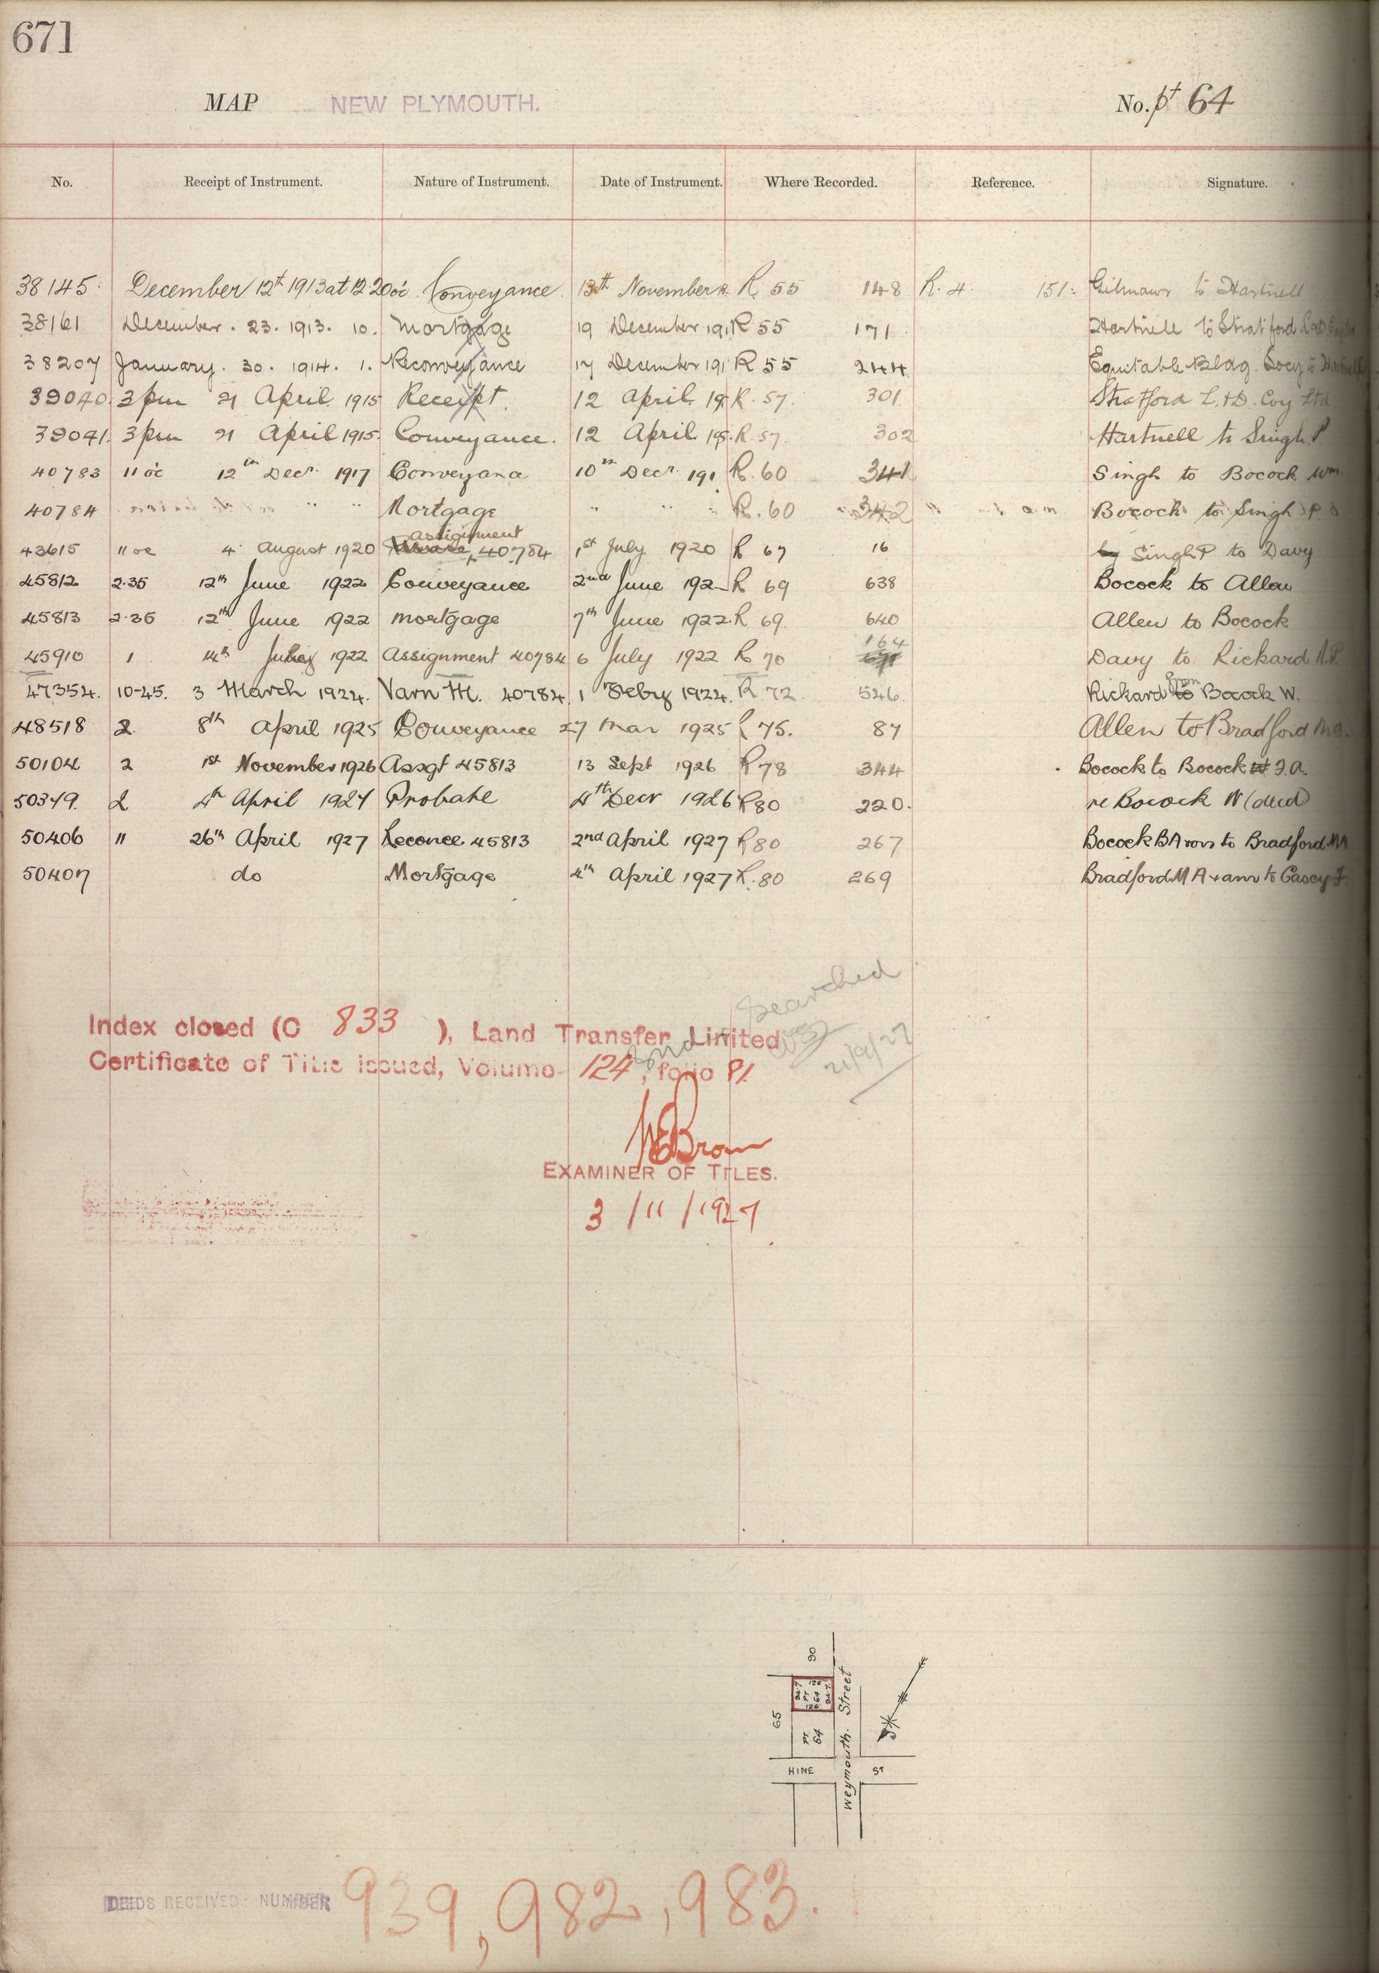 671
MAP NEW PLYMOUTH. No. pt 64
No. Receipt of Instrument. Nature of Instrument. Date of Instrument. Where Recorded. Reference. Signature.
38145. December 12th 1913 at 12.20 oc Conveyance 13th November R 55 148 R. 4. 151. to Hartnell
38161 December . 23. 1913. 10. Mortgage 19 December 191 R 55 171. Hartnell to Stratford
38207 January. 30. 1914. 1. Reconveyance 17 December 191 R 55 244 Equitable Bldg. Socy to
39040. 3 pm 21 April 1915 Receipt. 12 April 19 R. 57. 301. Stratford L. & D. Coy Ltd
39041. 3 pm 21 April 1915. Conveyance. 12 April 191 R. 57 302 Hartnell to Singh P
40783 11 oc 12th Decr. 1917 Conveyance 10th Decr 191 R. 60 341 Singh to Bocock Wm
40784 " " Mortgage " " " R. 60 342 Bocock to Singh P
43615 11 oc 4 August 1920 assignment 40784 1st July 1920 R 67 16 Singh P to Davy
45812 2.35 12th June 1922 Conveyance 2nd June 192 R 69 638 Bocock to Allen
45813 2.35 12th June 1922 Mortgage 7th June 1922 R 69. 640 Allen to Bocock
45910 1 14th July 1922 Assignment 40784 6 July 1922 R 70 164 Davy to Rickard
47354. 10-45. 3 March 1924. Varn M. 40784. 1 Feby 1924. R 72. 546. Rickard from Bocock W.
48518 2 8th April 1925 Conveyance 27 Mar 1925 R 75. 87 Allen to Bradford M.A.
50104 2 1st November 1926 Assgt 45813 13 Sept 1926 R 78 344 Bocock to Bocock F.A.
50349. 2 4th April 1927 Probate 4th Decr 1926 R 80 220. re Bocock W (decd)
50406 11 26th April 1927 Reconce 45813 2nd April 1927 R 80 267 Bocock to Bradford MA
50407 do Mortgage 4th April 1927 R. 80 269 Bradford M A & anr to Casey F.
Searched
21/9/27
Index closed (C 833 ), Land Transfer Limited
Certificate of Title issued, Volume 124, folio 81.
WEBrown
EXAMINER OF TITLES.
3/11/1927
90
126
267 PT 64 267
126
65
PT 64
Weymouth Street
HINE ST
DEEDS RECEIVED: NUMBER 939, 982, 983.